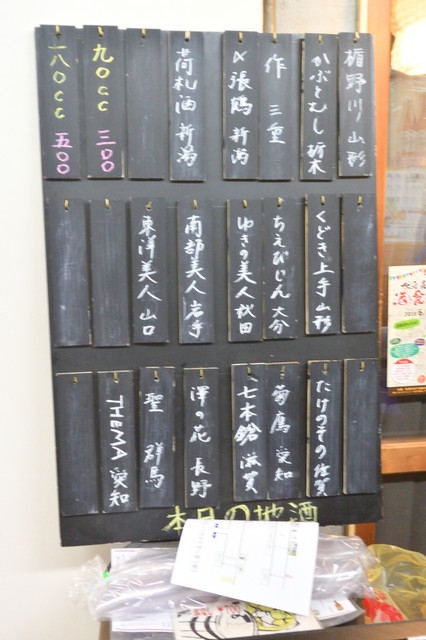 楯野川 山形
かぶとむし 栃木
作 三重
〆張鶴 新潟
荷札酒 新潟
九〇cc 三〇〇
一八〇cc 五〇〇
くどき上手 山形
ちえびじん 大分
ゆきの美人 秋田
南部美人 岩手
東洋美人 山口
たけのその 佐賀
菊鷹 愛知
七本鎗 滋賀
澤の花 長野
聖 群馬
THEMA 愛知
本日の地酒